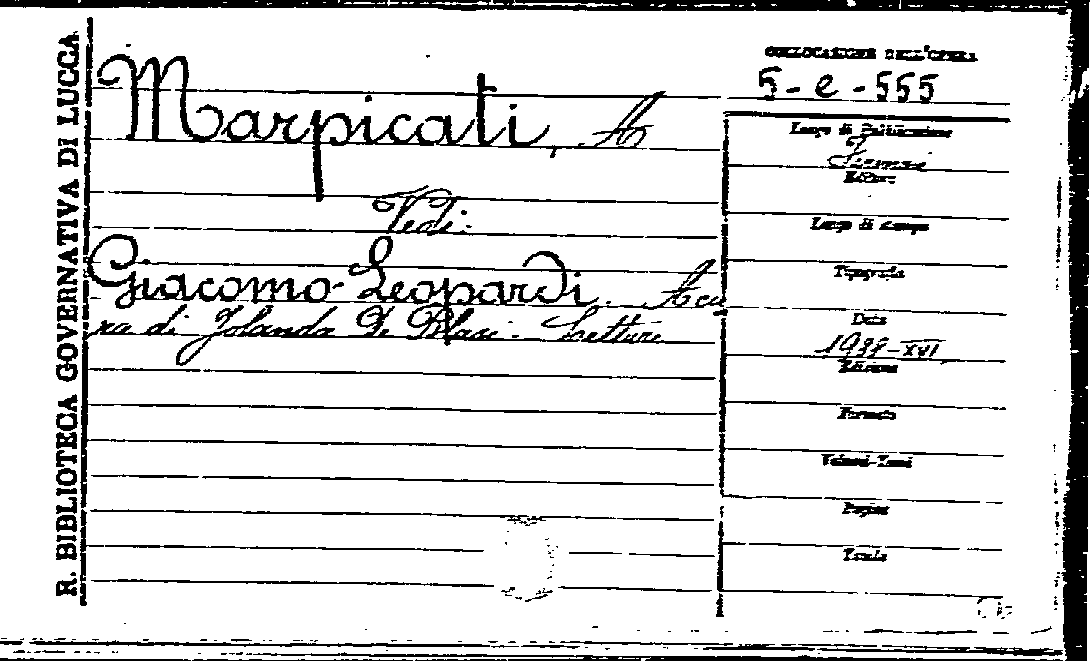 R. BIBLIOTECA GOVERNATIVA DI LUCCA
COLLOCAZIONE DELL'OPERA
5-e-555
Marpicati, A
Vedi:
Giacomo Leopardi. A cu
ra di Jolanda De Blasi. Letture
Luogo di Pubblicazione
Firenze
Editore
Luogo di stampa
Tipografia
Data
1938-XVI
Edizione
Formato
Volumi-Tomi
Pagine
Tavole